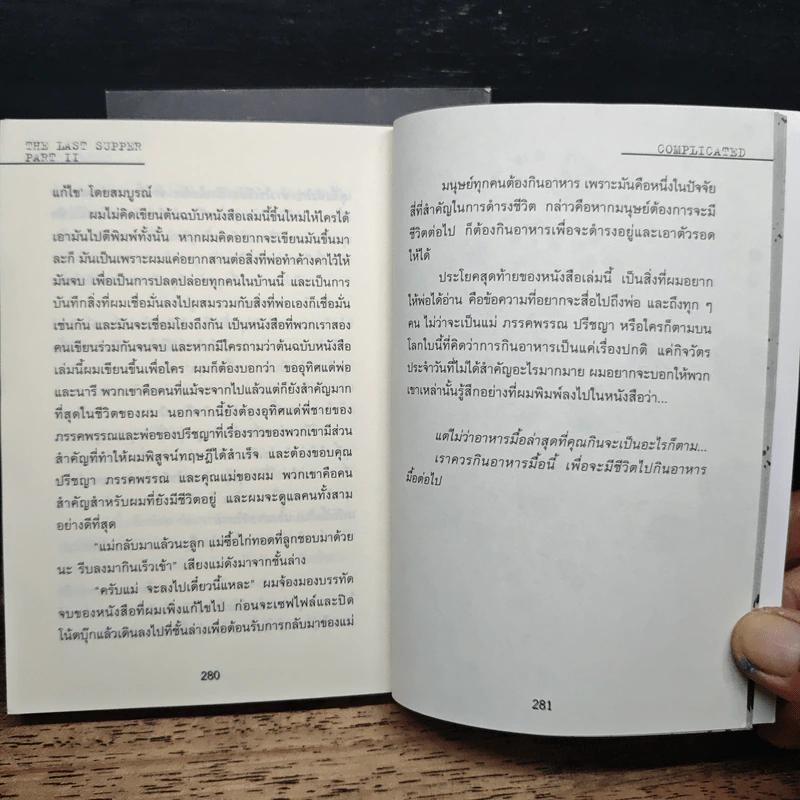 THE LAST SUPPER
PART II
แก้ไข' โดยสมบูรณ์
ผมไม่คิดเขียนต้นฉบับหนังสือเล่มนี้ขึ้นใหม่ให้ใครได้
เอามันไปตีพิมพ์ทั้งนั้น หากผมคิดอยากจะเขียนมันขึ้นมา
ละก็ มันเป็นเพราะผมแค่อยากสานต่อสิ่งที่พ่อทำค้างคาไว้ให้
มันจบ เพื่อเป็นการปลดปล่อยทุกคนในบ้านนี้ และเป็นการ
บันทึกสิ่งที่ผมเชื่อมั่นลงไปผสมรวมกับสิ่งที่พ่อเองก็เชื่อมั่น
เช่นกัน และมันจะเชื่อมโยงถึงกัน เป็นหนังสือที่พวกเราสอง
คนเขียนร่วมกันจนจบ และหากมีใครถามว่าต้นฉบับหนังสือ
เล่มนี้ผมเขียนขึ้นเพื่อใคร ผมก็ต้องบอกว่า ขออุทิศแด่พ่อ
และนารี พวกเขาคือคนที่แม้จะจากไปแล้วแต่ก็ยังสำคัญมาก
ที่สุดในชีวิตของผม นอกจากนี้ยังต้องอุทิศแด่พี่ชายของ
ภรรคพรรณและพ่อของปรีชญาที่เรื่องราวของพวกเขามีส่วน
สำคัญที่ทำให้ผมพิสูจน์ทฤษฎีได้สำเร็จ และต้องขอบคุณ
ปรีชญา ภรรคพรรณ และคุณแม่ของผม พวกเขาคือคน
สำคัญสำหรับผมที่ยังมีชีวิตอยู่ และผมจะดูแลคนทั้งสาม
อย่างดีที่สุด
"แม่กลับมาแล้วนะลูก แม่ซื้อไก่ทอดที่ลูกชอบมาด้วย
นะ รีบลงมากินเร็วเข้า" เสียงแม่ดังมาจากชั้นล่าง
"ครับแม่ จะลงไปเดี๋ยวนี้แหละ" ผมจ้องมองบรรทัด
จบของหนังสือที่ผมเพิ่งแก้ไขไป ก่อนจะเซฟไฟล์และปิด
โน้ตบุ๊กแล้วเดินลงไปที่ชั้นล่างเพื่อต้อนรับการกลับมาของแม่
280
COMPLICATED
มนุษย์ทุกคนต้องกินอาหาร เพราะมันคือหนึ่งในปัจจัย
สี่ที่สำคัญในการดำรงชีวิต กล่าวคือหากมนุษย์ต้องการจะมี
ชีวิตต่อไป ก็ต้องกินอาหารเพื่อจะดำรงอยู่และเอาตัวรอด
ให้ได้
ประโยคสุดท้ายของหนังสือเล่มนี้ เป็นสิ่งที่ผมอยาก
ให้พ่อได้อ่าน คือข้อความที่อยากจะสื่อไปถึงพ่อ และถึงทุก ๆ
คน ไม่ว่าจะเป็นแม่ ภรรคพรรณ ปรีชญา หรือใครก็ตามบน
โลกใบนี้ที่คิดว่าการกินอาหารเป็นแค่เรื่องปกติ แค่กิจวัตร
ประจำวันที่ไม่ได้สำคัญอะไรมากมาย ผมอยากจะบอกให้พวก
เขาเหล่านั้นรู้สึกอย่างที่ผมพิมพ์ลงไปในหนังสือว่า...
แต่ไม่ว่าอาหารมื้อล่าสุดที่คุณกินจะเป็นอะไรก็ตาม...
เราควรกินอาหารมื้อนี้ เพื่อจะมีชีวิตไปกินอาหาร
มื้อต่อไป
281